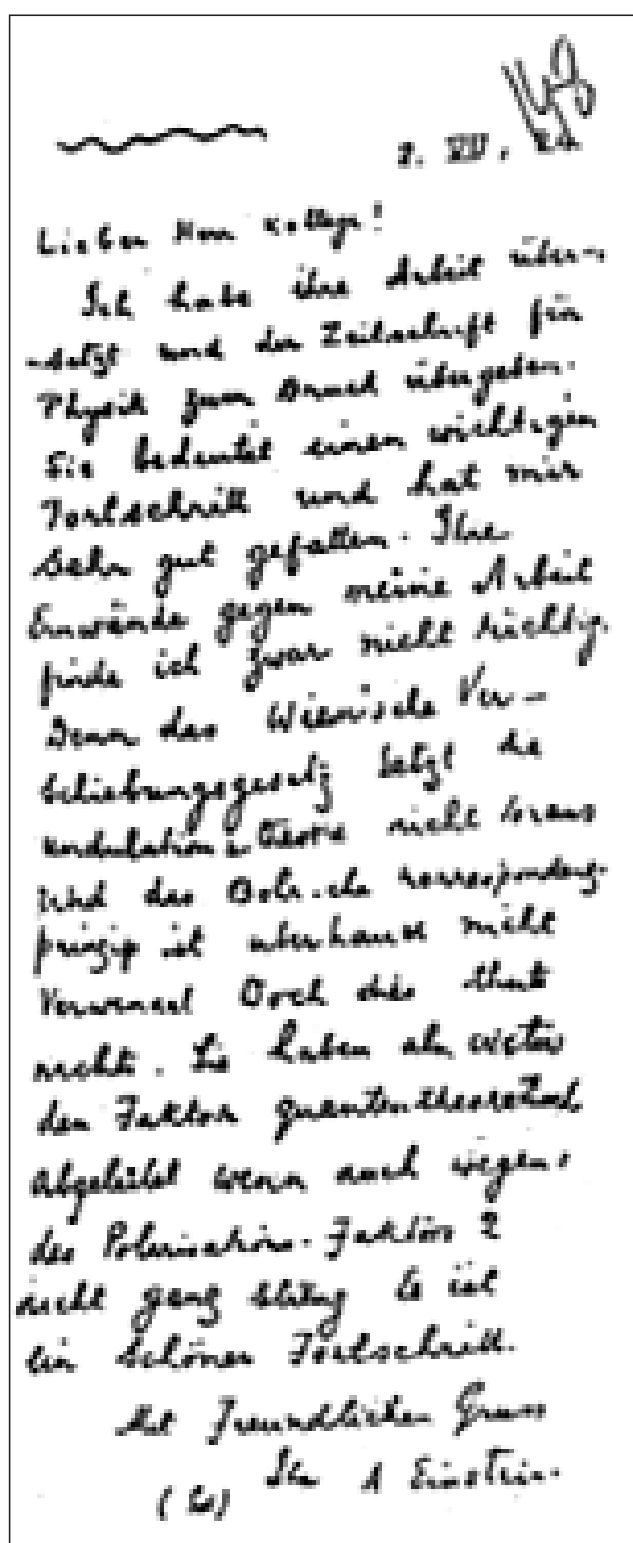 2. VII. 24
Lieber Herr Kollege!
Ich habe ihre Arbeit über-
-setzt und der Zeitschrift für
Physik zum Druck übergeben.
Sie bedeutet einen wichtigen
Fortschritt und hat mir
sehr gut gefallen. Ihre
Einwände gegen meine Arbeit
finde ich zwar nicht richtig.
Denn das Wiensche Ver-
schiebungsgesetz setzt die
Undulations theorie nicht voraus
und das Bohr-che korrespondenz-
prinzip ist überhaupt nicht
Verwendet Doch dies thut
nichts. Sie haben als erster
den Faktor quantentheoretisch
abgeleitet wenn auch wegen
des Polarisations-Faktors 2
nicht ganz streng Es ist
ein schöner Fortschritt.
Mit Freundlichen Gruss
Ihr A Einstein.